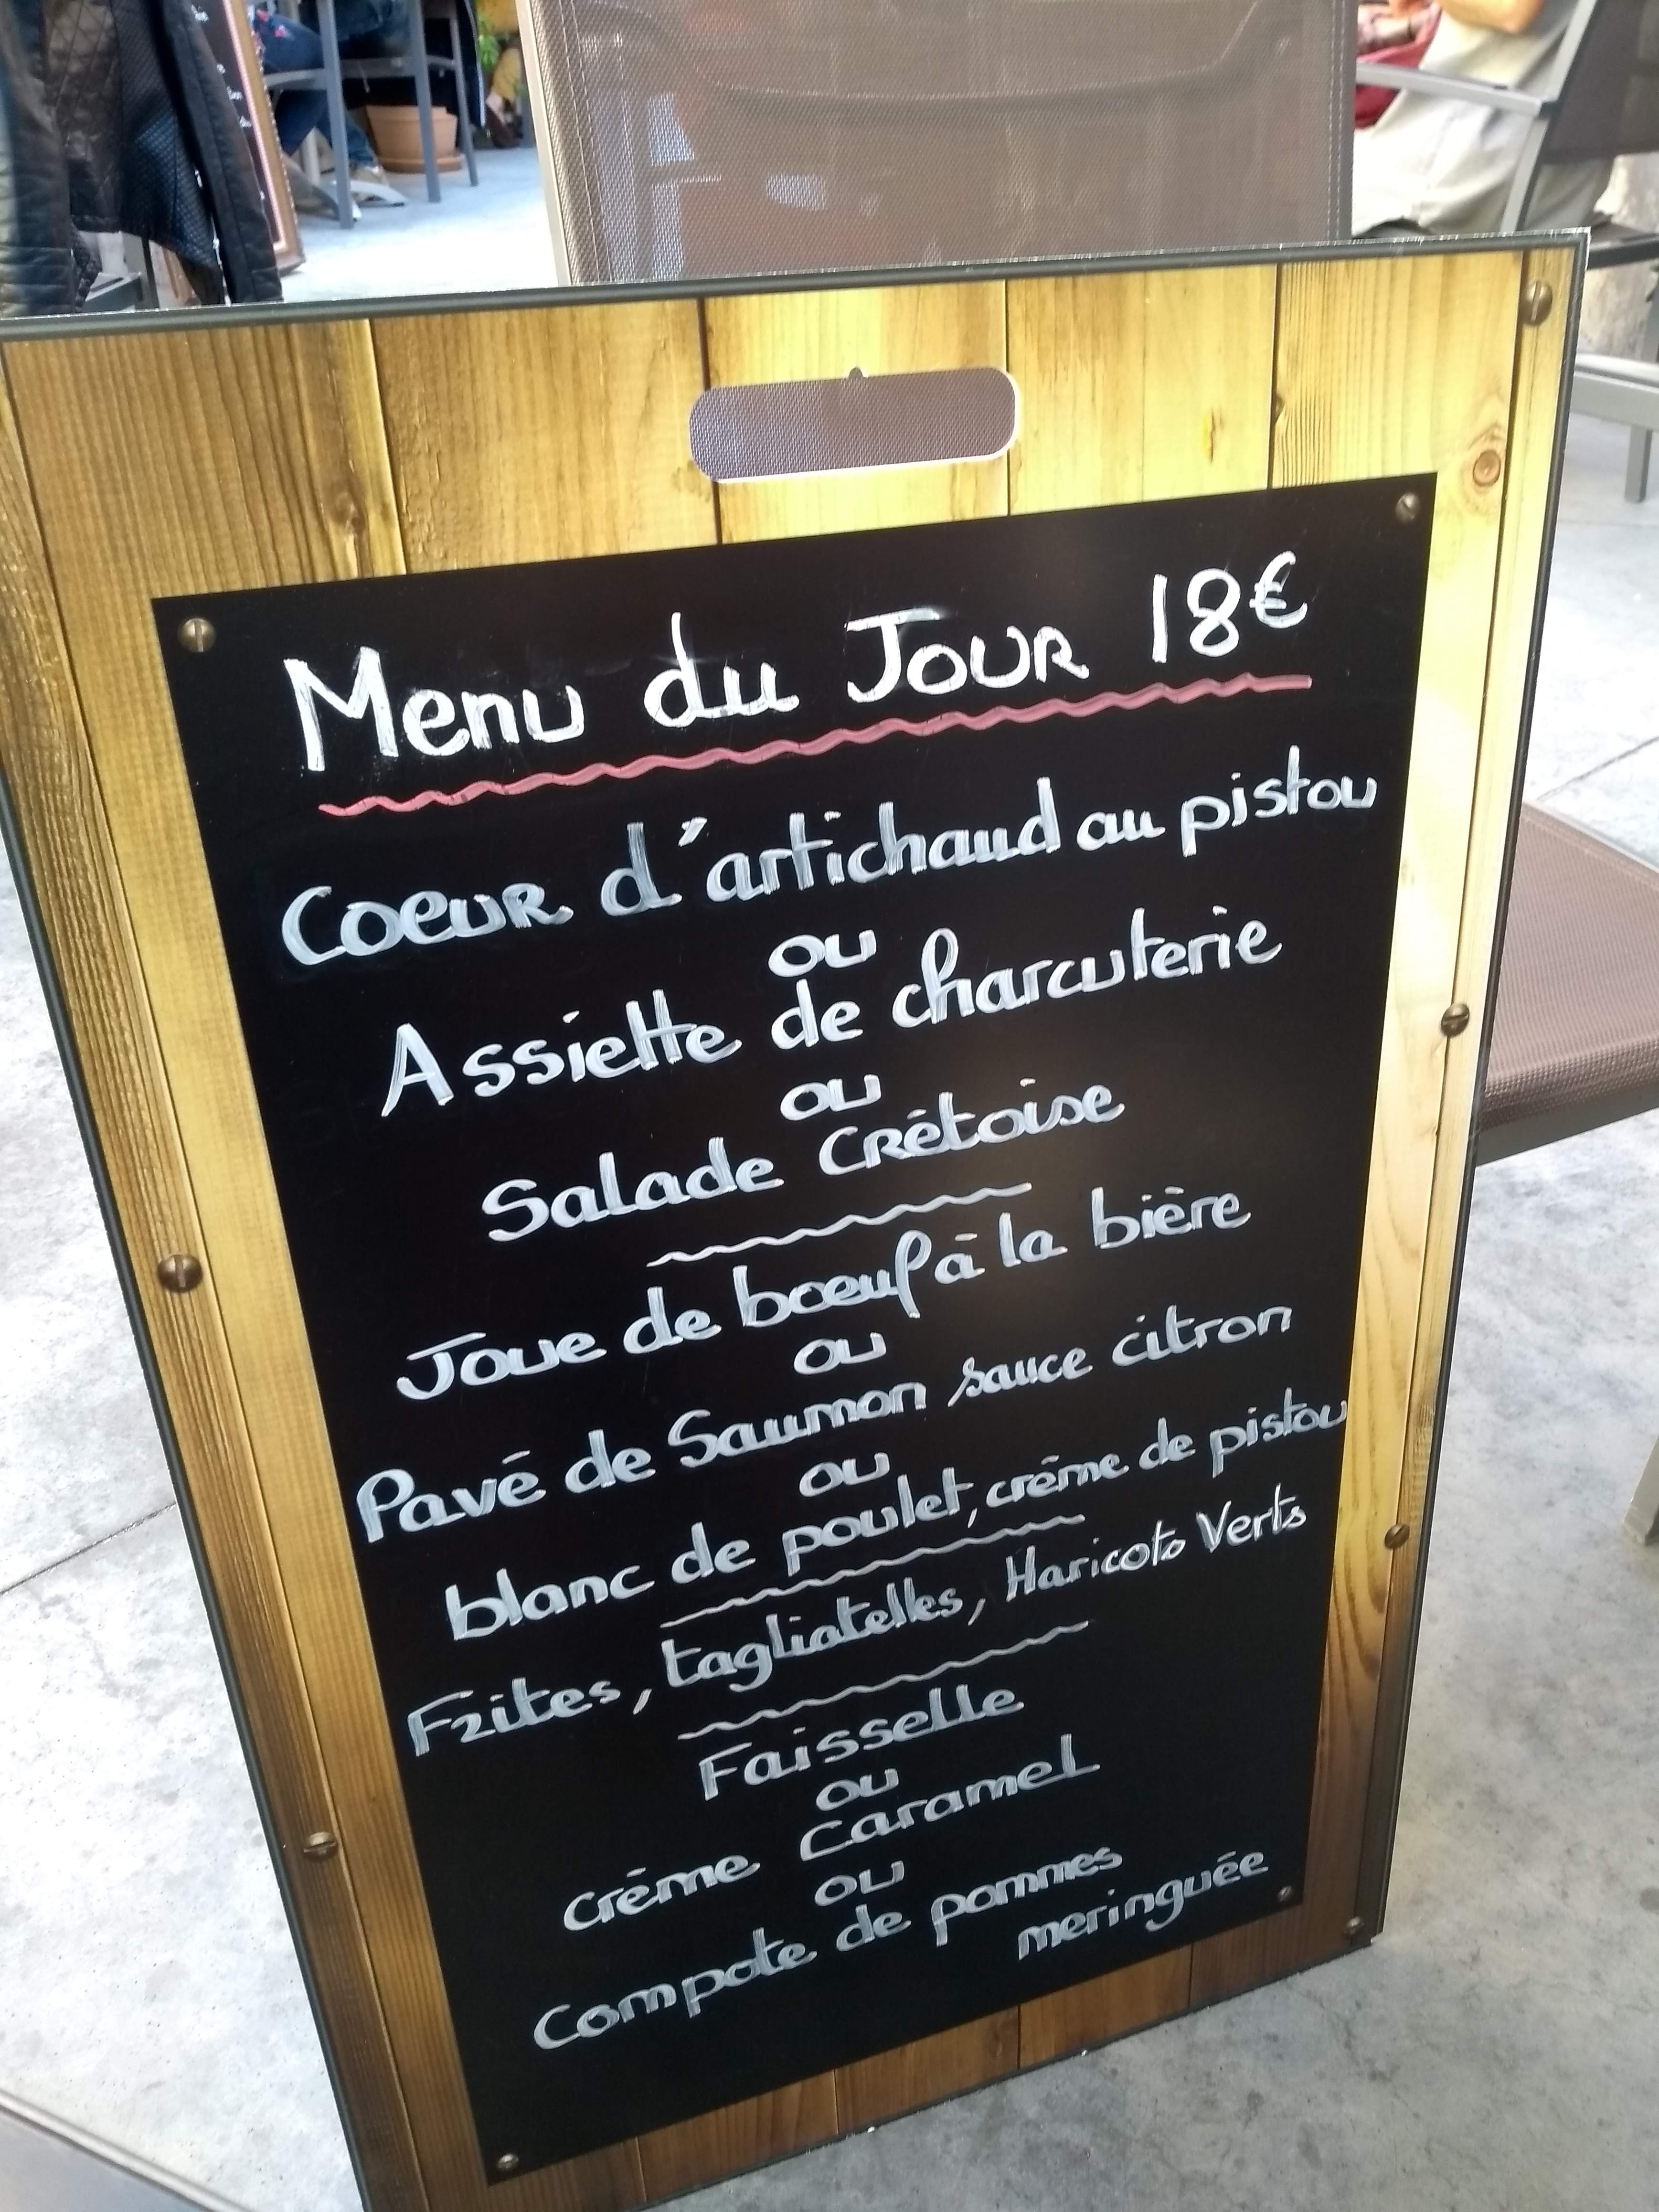 Menu du Jour 18€
Coeur d'artichaud au pistou
ou
Assiette de charcuterie
ou
Salade Crétoise
Joue de bœuf à la bière
ou
Pavé de Saumon sauce citron
ou
blanc de poulet, crème de pistou
Frites, tagliatelles, Haricots Verts
Faisselle
ou
crème caramel
ou
Compote de pommes
meringuée